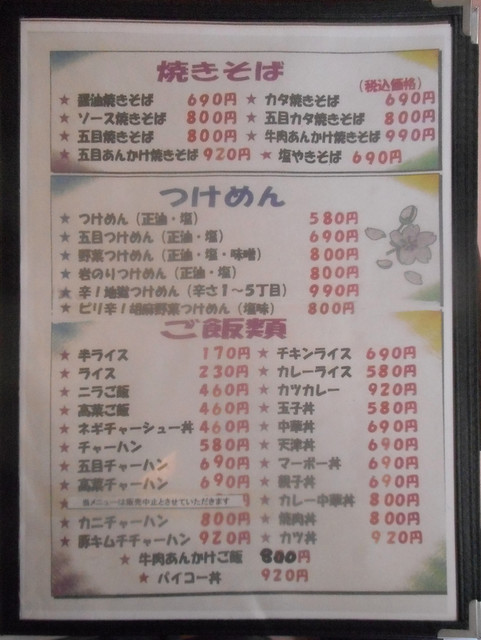 焼きそば
(税込価格)
★ 醤油焼きそば 690円 ★ カタ焼きそば 690円
★ ソース焼きそば 800円 ★ 五目カタ焼きそば 800円
★ 五目焼きそば 800円 ★ 牛肉あんかけ焼きそば 990円
★ 五目あんかけ焼きそば 920円 ★ 塩やきそば 690円
つけめん
★ つけめん（正油・塩） 580円
★ 五目つけめん（正油・塩） 690円
★ 野菜つけめん（正油・塩・味噌） 800円
★ 岩のりつけめん（正油・塩） 800円
★ 辛！地獄つけめん（辛さ１～５丁目） 990円
★ ピリ辛！胡麻野菜つけめん（塩味） 800円
ご飯類
★ 半ライス 170円 ★ チキンライス 690円
★ ライス 230円 ★ カレーライス 580円
★ ニラご飯 460円 ★ カツカレー 920円
★ 高菜ご飯 460円 ★ 玉子丼 580円
★ ネギチャーシュー丼 460円 ★ 中華丼 690円
★ チャーハン 580円 ★ 天津丼 690円
★ 五目チャーハン 690円 ★ マーボー丼 690円
★ 高菜チャーハン 690円 ★ 親子丼 690円
★ 当メニューは販売中止とさせていただきます ★ カレー中華丼 800円
★ カニチャーハン 800円 ★ 焼肉丼 800円
★ 豚キムチチャーハン 920円 ★ カツ丼 920円
★ 牛肉あんかけご飯 800円
★ パイコー丼 920円